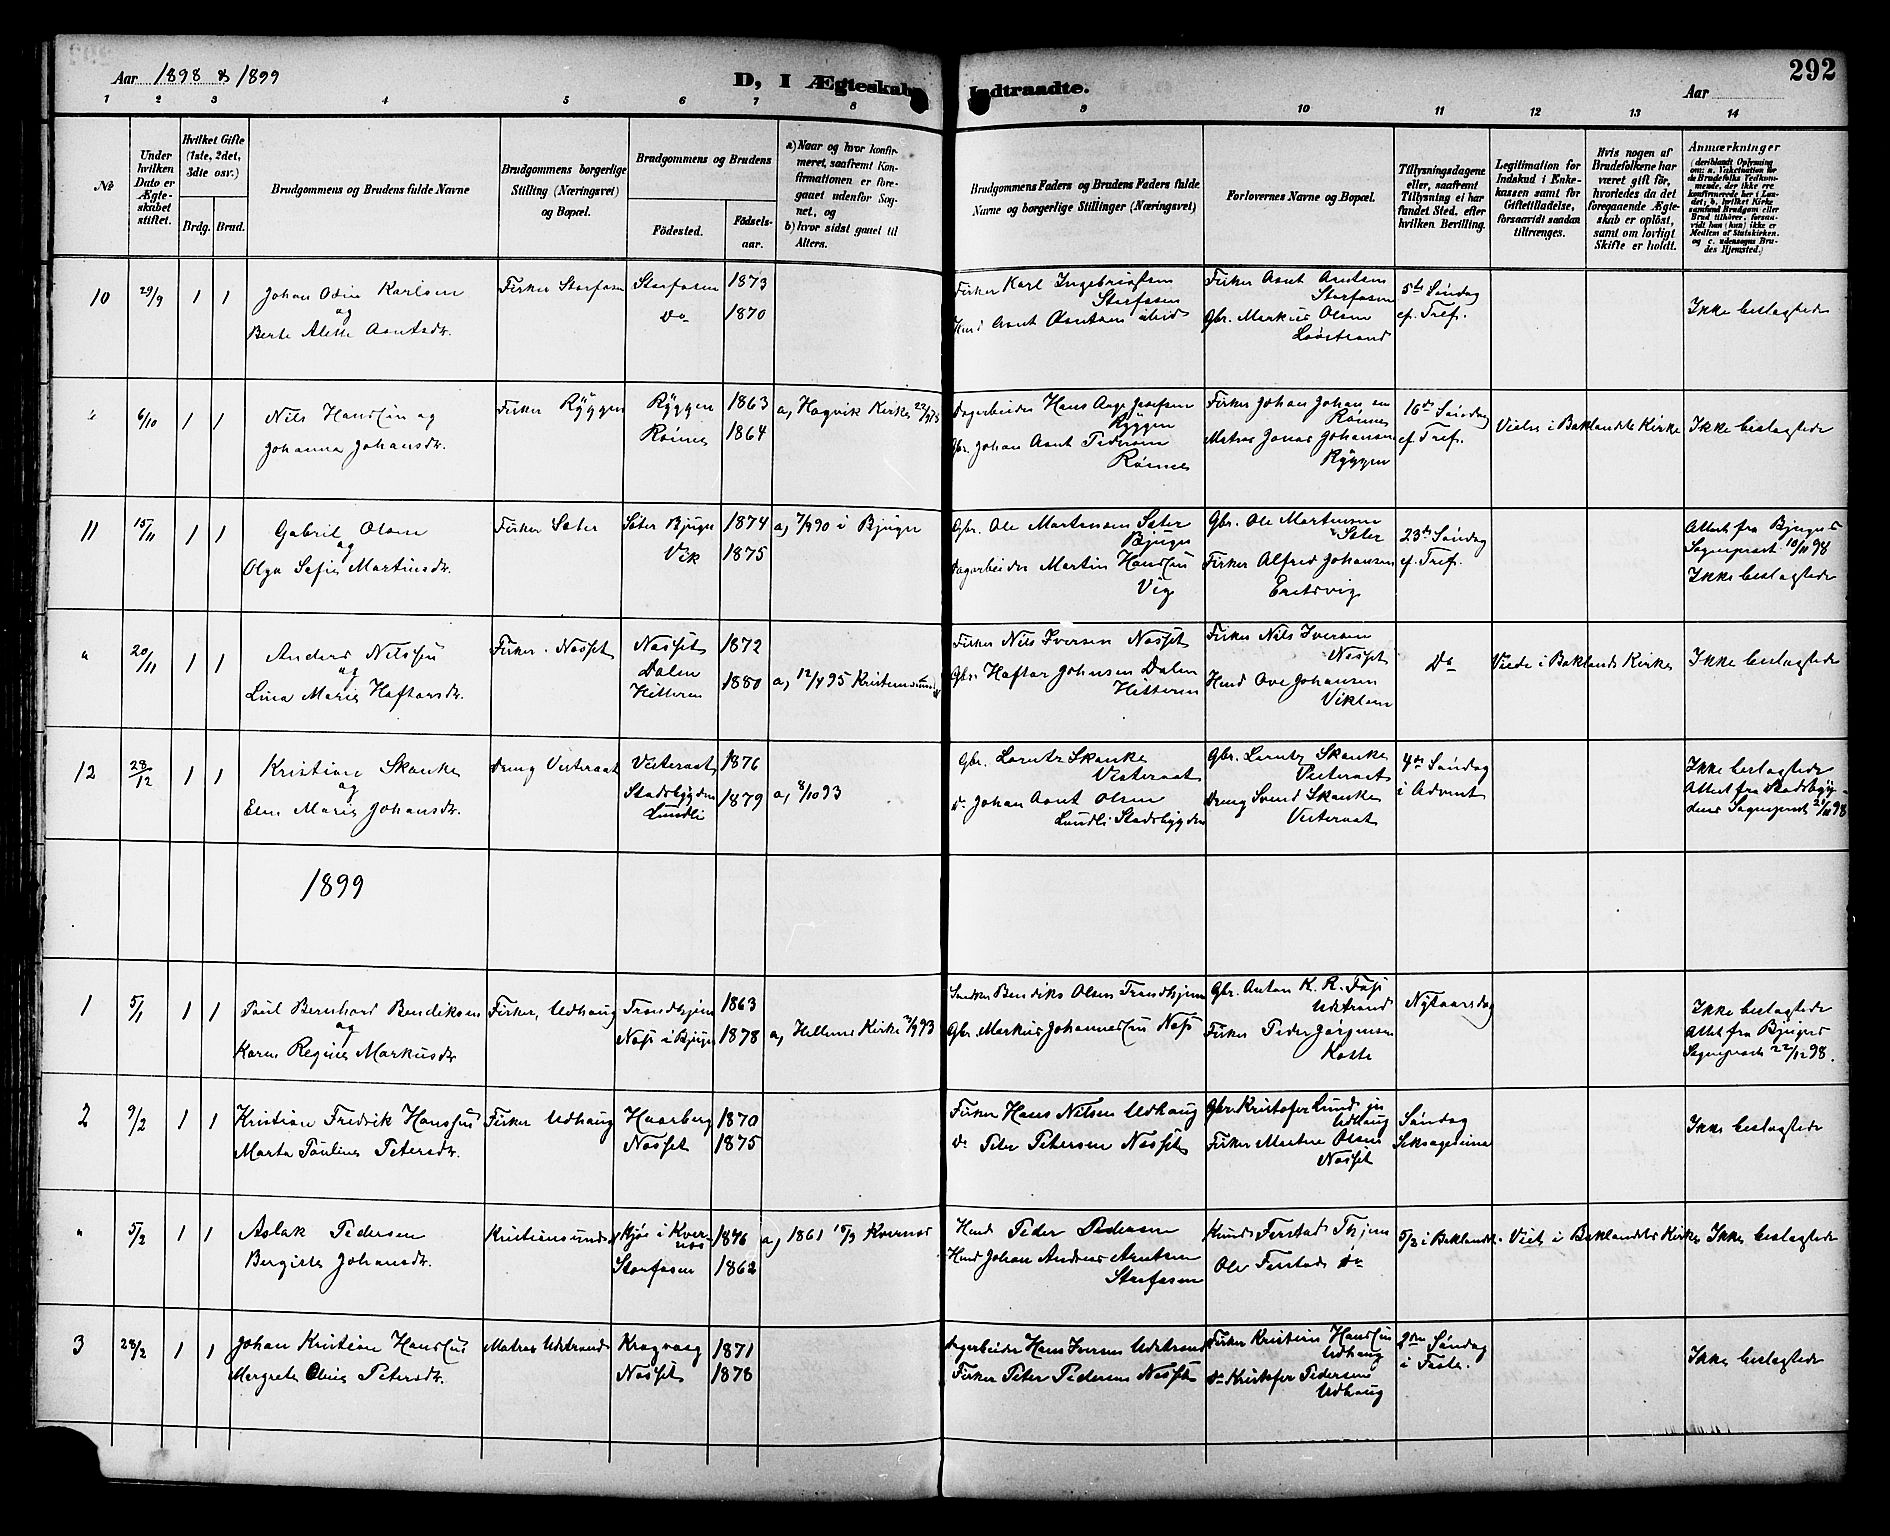 292
Aar 1898 & 1899
D, I Ægteskab Indtraadte.
Aar
1 2 3 4 5 6 7 8 9 10 11 12 13 14
No
Under hvilken Dato er Ægteskabet stiftet.
Hvilket Gifte (1ste, 2det, 3die osv.)
Brdg. Brud.
Brudgommens og Brudens fulde Navne
Brudgommens borgerlige Stilling (Næringsvei) og Bopæl.
Brudgommens og Brudens
Fødested.
Fødselsaar.
a) Naar og hvor konfirmeret, saafremt Konfirmationen er foregaaet udenfor Sognet, og
b) hvor sidst gaaet til Alters.
Brudgommens Faders og Brudens Faders fulde Navne og borgerlige Stillinger (Næringsvei)
Forlovernes Navne og Bopæl.
Tillysningsdagene eller, saafremt Tillysning ei har fundet Sted, efter hvilken Bevilling.
Legitimation for Indskud i Enkekassen samt for Giftetilladelse, forsaavidt saadan tiltrænges.
Hvis nogen af Brudefolkene har været gift før, hvorledes da det foregaaende Ægteskab er opløst, samt om lovligt Skifte er holdt.
Anmærkninger
10 29/9 1 1
Johan Odin Karlsen
og
Berte Aline Aantsdr.
Fisker Storfosen
Storfosen 1873
Do 1870
Fisker Karl Ingebrigtsen
Storfosen
Fisker Aant Aantsen
Storfosen
Gbr. Markus Olsen
5te Søndag
ef. Tref.
Ikke beslægtede
" 6/10 1 1
Nils Hanssen og
Johanna Johansdr.
Fisker Ryggen
Ryggen 1863
Rønnes 1864
Dagarbeider Hans Aage Josefsen
Ryggen
Gbr. Johan Aant Pedersen
Rønnes
Fisker Johan Johansen
Rønnes
Matros Jonas Johansen
Ryggen
16de Søndag
ef. Tref.
Viede i Baklandets Kirke
Ikke beslægtede
11 15/11 1 1
Gabriel Olsen
og
Olga Sofie Martinsdr.
Fisker Sæter
Sæter Bjugn 1874
Vik 1875
Gbr. Ole Mortensen Sæter
Bjugn
Dagarbeider Martin Hanssen
Vig
Gbr. Ole Mortensen
Sæter
Fisker Alfred Johansen
23de Søndag
ef. Tref.
Attest fra Bjugns
Sognepræst 10/11 98
Ikke beslægtede
" 20/11 1 1
Anders Nilssen
og
Lina Marie Haftorsdr.
Fisker Næsset
Næsset 1872
Dalen
Hitteren 1880
a, 12/4 95 Kristiansund
Fisker Nils Iversen Næsset
Gbr. Haftor Johnsen Dalen
Hitteren
Fisker Nils Iversen
Næsset
Hmd Ove Johansen
Viklem
Do
Viede i Baklands Kirke
Ikke beslægtede
12 28/12 1 1
Kristian Skanke
og
Elen Marie Johansdr.
Dreng Vesteraat
Vesteraat 1876
Stadsbygden
Lundli 1879
a, 8/10 93
Gbr. Lorntz Skanke
Vesteraat
Do Johan Aant Olsen
Lundli Stadsbygden
Gbr. Lorntz Skanke
Vesteraat
Dreng Svend Skanke
Vesteraat
4de Søndag
i Advent
Ikke beslægtede
Attest fra Stadsbygdens
Sognepræst 21/11 98
1899
1 5/1 1 1
Paul Bernhard Bendiksen
og
Karen Regine Markusdr.
Fisker, Udhaug
Trondhjem 1863
Næs i Bjugn 1878
Bendiks Olsen Trondhjem
Gbr. Markus Johannessen Næs
Gbr. Anton K. R. Næs
Udstrand
Fisker Peder Jørgensen
Kotte
Nytaarsdag
Ikke beslægtede
Attest fra Bjugns
Sognepræst 22/12 98.
2 9/2 1 1
Kristian Fredrik Hanssen
Marta Pauline Petersdr.
Fisker Udhaug
Haarberg 1870
Næsset 1875
Fisker Hans Nilsen Udhaug
Do Peter Petersen Næsset
Gbr. Kristofer Lund jn
Udhaug
Fisker Martin Olsen
Næsset
Søndag
Seksagesima
Ikke beslægtede
" 5/2 1 1
Aslak Pedersen
Bergitte Johansdr.
Kristiansund
1846
Storfosen 1862
a, 1861 Kvernæs
Hmd Peder Pedersen
Hmd Johan Andreas Arntsen
Storfosen
Ole Ferstad Do
5/2 i Baklandet
Viet i Baklandets Kirke
Ikke beslægtede
3 28/2 1 1
Johan Kristian Hanssen
Mergrete Oline Petersdr.
Matros Udstrand
Kragvaag 1871
Næsset 1878
Dagarbeider Hans Iversen Udstrand
Fisker Peter Pedersen Næsset
Fisker Kristian Hanssen
Udhaug
Do Kristofer Pedersen
Udhaug
2den Søndag
i Faste.
Ikke beslægtede